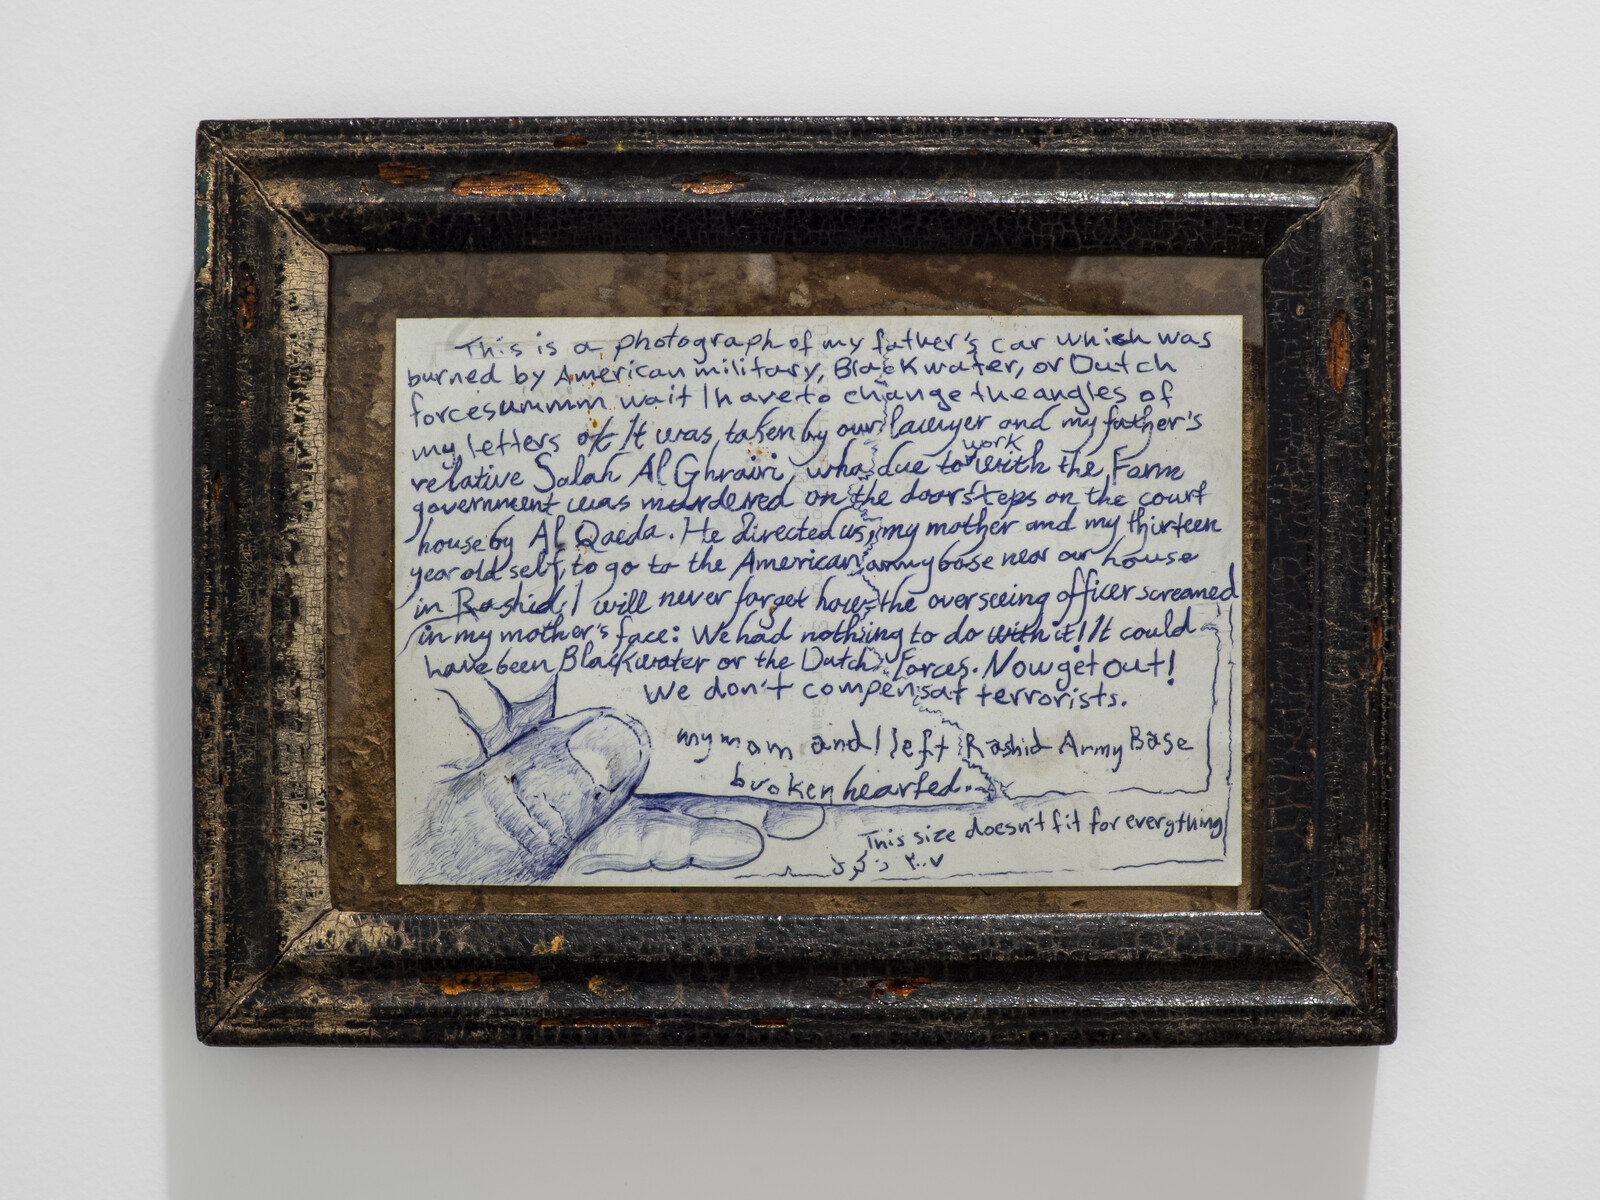 This is a photograph of my father's car which was
burned by American military, Blackwater, or Dutch
forces ummm wait I have to change the angles of
my letters ok It was taken by our lawyer and my father's
work
relative Salah Al Ghrairi, who due to with the Form
government was murdered on the doorsteps on the court
house by Al Qaeda. He directed us, my mother and my thirteen
year old self, to go to the American army base near our house
in Rashid. I will never forget how the overseeing officer screamed
in my mother's face: We had nothing to do with it! It could
have been Blackwater or the Dutch Forces. Now get out!
We don't compensat terrorists.
my mom and I left Rashid Army Base
broken hearted..
This size doesn't fit for everything
٢٠٠٧